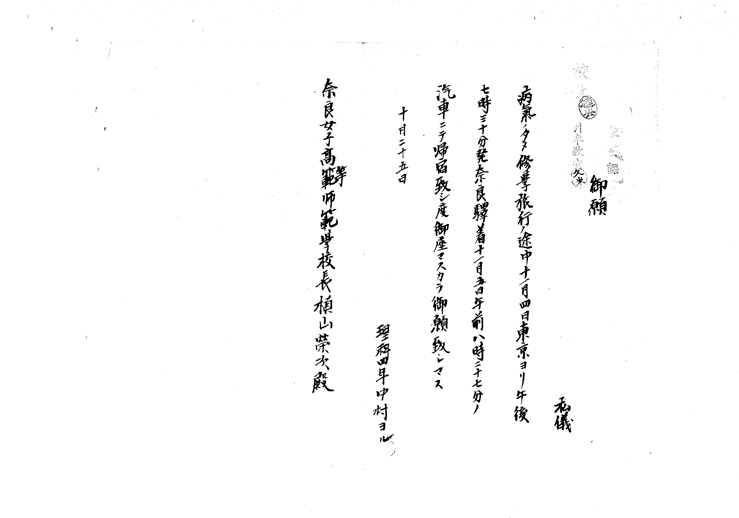 御願
私儀
病氣ノタメ修學旅行ノ途中十一月四日東京ヨリ午後
七時三十分発奈良驛着十一月五日午前八時二十七分ノ
汽車ニテ帰宿致シ度御座マスカラ御願致シマス
十月二十五日
理科四年中村ヨル
奈良女子高等範師範學校長槙山榮次殿